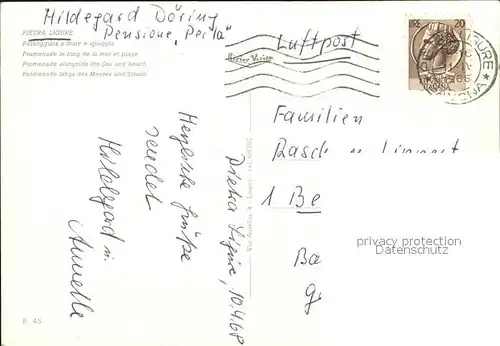 Hildegard Döring
Pensione „Perla"
PIETRA LIGURE
Passeggiata a mare e spiaggia
Promenade le long de la mer et plage
Promenade alongside the Sea and beach
Promenade längs des Meeres und Strand
Luftpost
20
LIGURE
SAVONA
Pietra Ligure, 10.4.68
Herzliche Grüße
sendet
Hildegard u.
Annelle
Familien
Rasch u. Lippert
1 Be
Ba
privacy protection
Datenschutz
P. 45